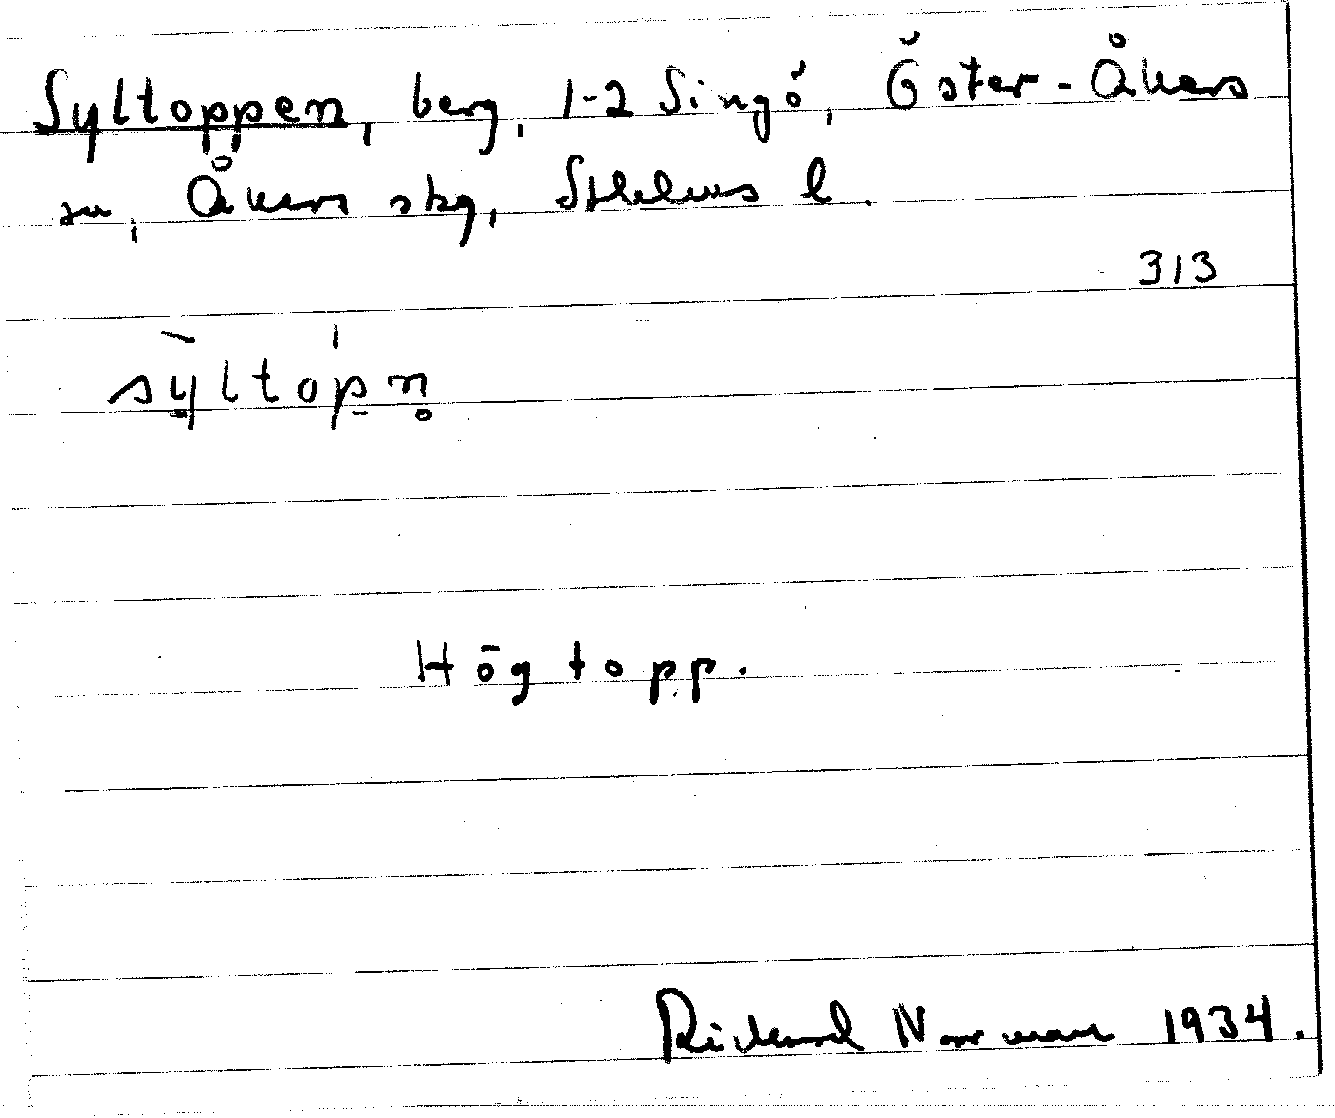 Syltoppen, berg, 1-2 Singö, Öster-Åkers
sn, Åkers skg, Sthlms l.
313
sỳltop̍n̥
Hög topp.
Rickard Norman 1934.